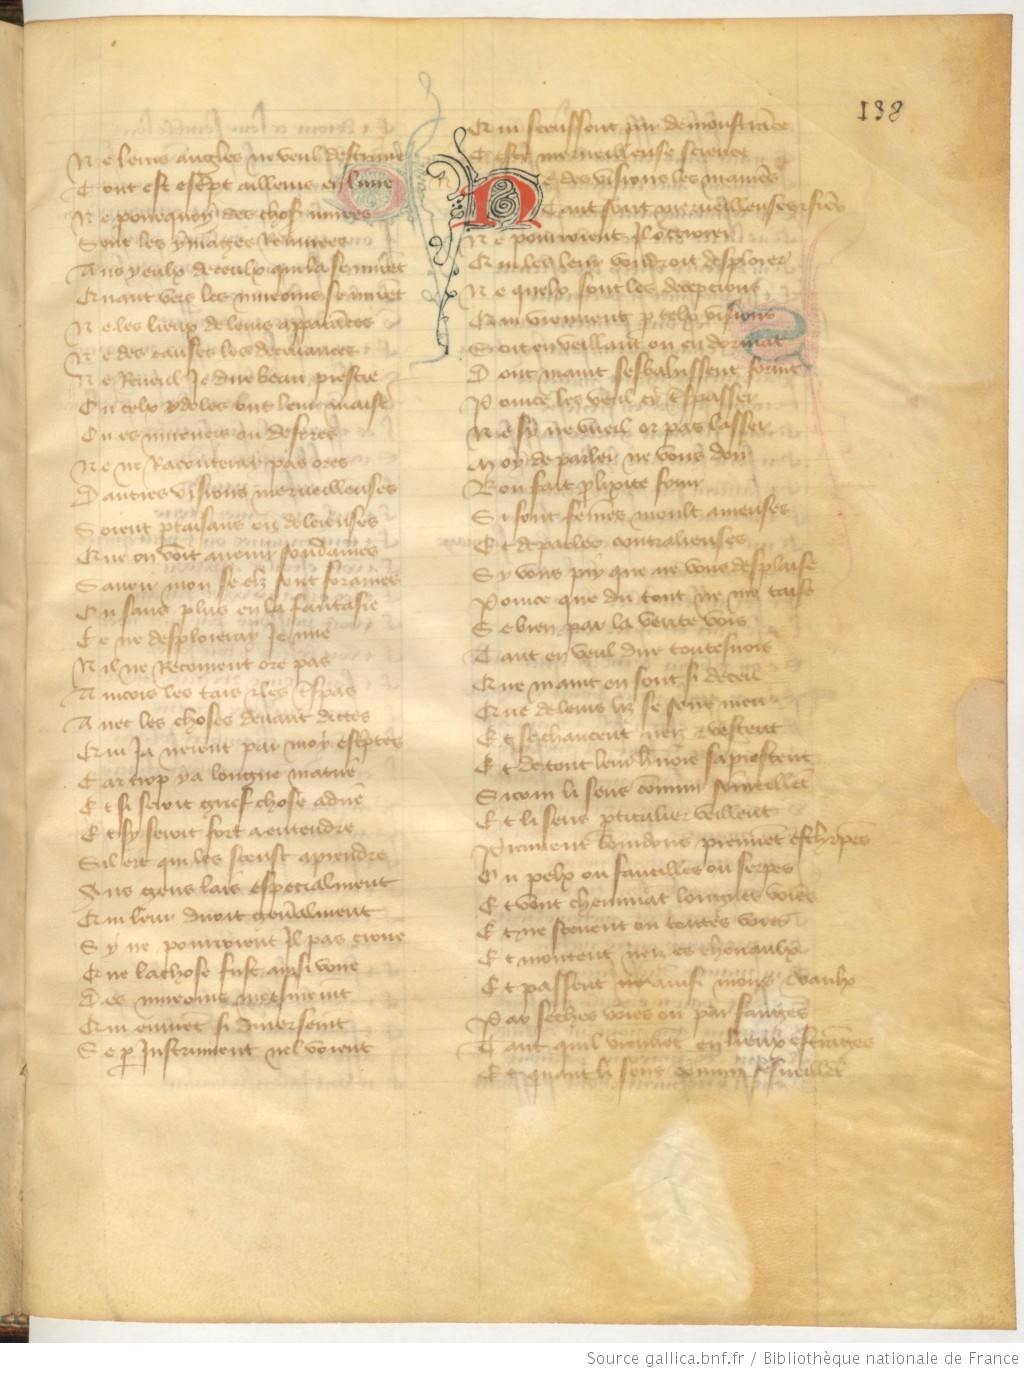 138
Ne leurs angles ne veul descrivre
Tout est escript ailleurs en livre
Ne pourquoy des choses mirees
Sont les ymages remuees
Aus yeulx de ceulx qui la se mirent
Quant vers les mirouers se virent
Ne les lieux de leurs apparences
Ne des causes les decevances
Ne Reveul Je dire beau prestre
Ou telx ydoles ont leur
En es mirouers ou defores
Ne ne Raconteray pas ores
Dautres visions merveilleuses
Soient plaisans ou
Que on voit avenir soudaines
Savoir mon se elz sont foraines
Ou sans plus en la fantasie
Ce ne desploieray Je mie
Nil ne Recouvient ore pas
Aincois les tais et les trespas
Avec les choses devant dictes
Qui Ja nerent par moy escriptes
Car trop ya longue matire
Et si seroit grief chose a dire
Et sy seroit fort a entendre
Sil ert qui les sceust aprendre
Aus gens lais especialment
Qui leur diroit generalment
Sy ne pourroient Il pas croire
Que la chose fust ainsi voire
Des mirouers
Qui euvrent si diversement
Se par Instrument nel voient
Qui sceussent par demonstrance
Ceste merveilleuse science
Ne des visions les manieres
Tant sont merveilleuses et fieres
Ne pourroient Il ottroier
Qui les leur vouldroit desploier
Ne quelx sont les decepcions
Qui viennent par telx visions
Soit en veillant ou en dormant
Dont maint sesbahissent forment
Pource les veul cy trespasser
Ne sy ne vueil or pas lasser
Moy de parler ne vous doir
Bon fait prolixite fouir
Si sont femmes moult ameuses
Et de parler contralieuses
Sy vous pry que ne vous desplaise
Pource que du tout ne me taise
Se bien par la verite vois
Tant en veul dire toutesvois
Que maint en sont si deceu
Que de leurs liz se sont meu
Et se chaucent neiz et vestent
Et de tout leur hernois saprestent
Sicom li sens commun sommeillent
Et li sens particulier veillent
Prennent bourdons prennent escherpes
Ou pelx ou faucilles ou serpes
Et vont cheminant longues voies
Et ne scevent ou toutes voies
Et montent neiz es chevaulx
Et passent ainsi mons et vaulx
Par seches voies ou par fanges
Tant quil viennent en lieux estranges
Et quant li sens commun sesveillent
Source gallica.bnf.fr / Bibliothèque nationale de France